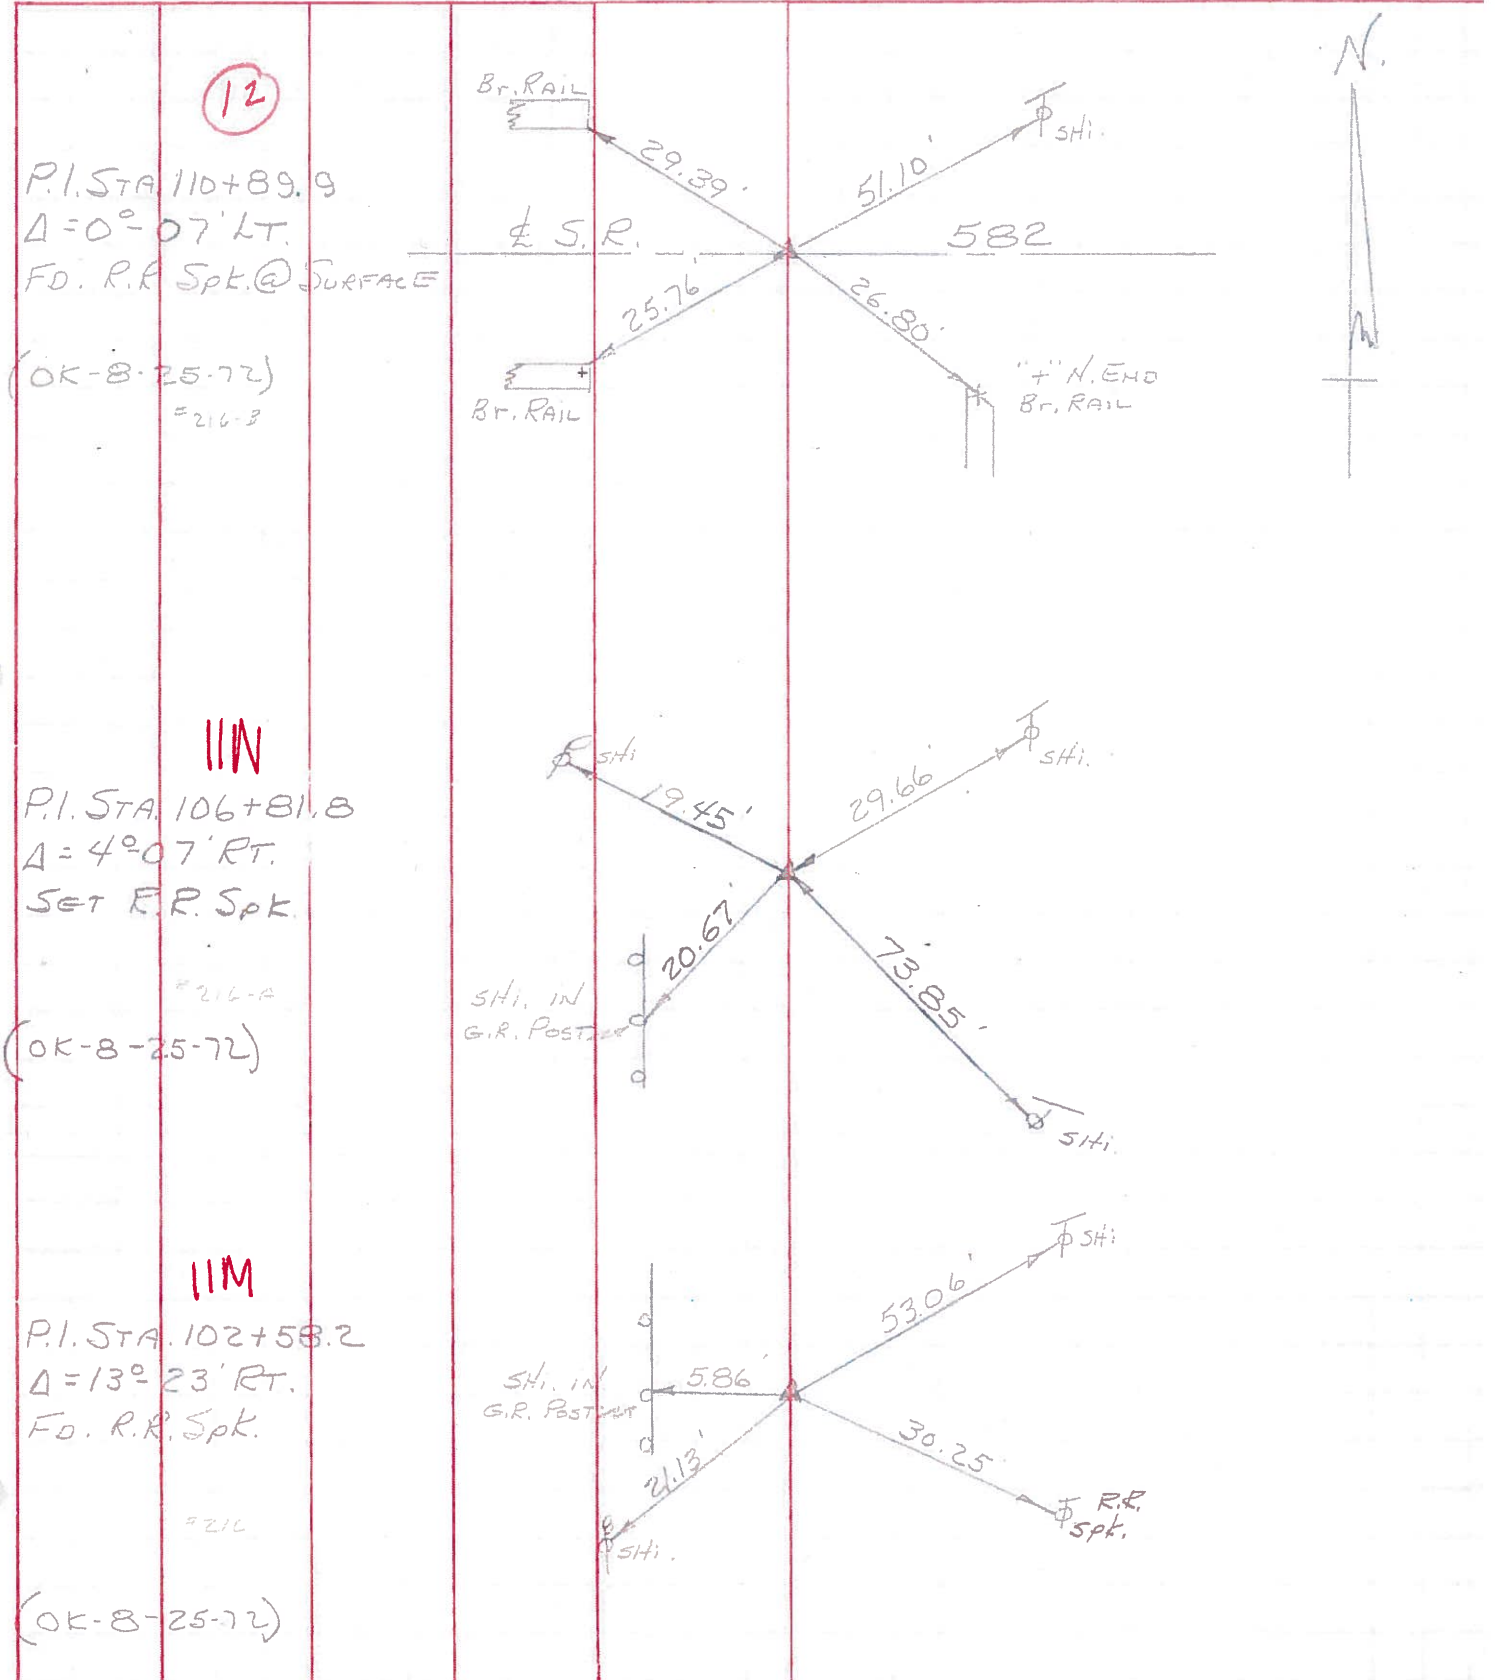 12
P.I. STA. 110+89.9
Δ=0°-07' LT.
FD. R.R. Spk. @ SURFACE
(OK-8-25-72)
#216-B
Br. RAIL
29.39'
51.10'
SHi.
℄ S.R. 582
25.76'
26.80'
Br. RAIL
"+" N. END
Br. RAIL
N.
11N
P.I. STA. 106+81.8
Δ=4°-07' RT.
SET R.R. Spk.
#216-A
(OK-8-25-72)
SHi
19.45'
29.66'
SHi.
20.67'
73.85'
SHi. IN
G.R. POST
SHi.
11M
P.I. STA. 102+58.2
Δ=13°-23' RT.
FD. R.R. Spk.
#216
(OK-8-25-72)
53.06'
SHi
SHi. IN
G.R. POST
5.86'
21.13'
30.25
SHi.
R.R.
Spk.